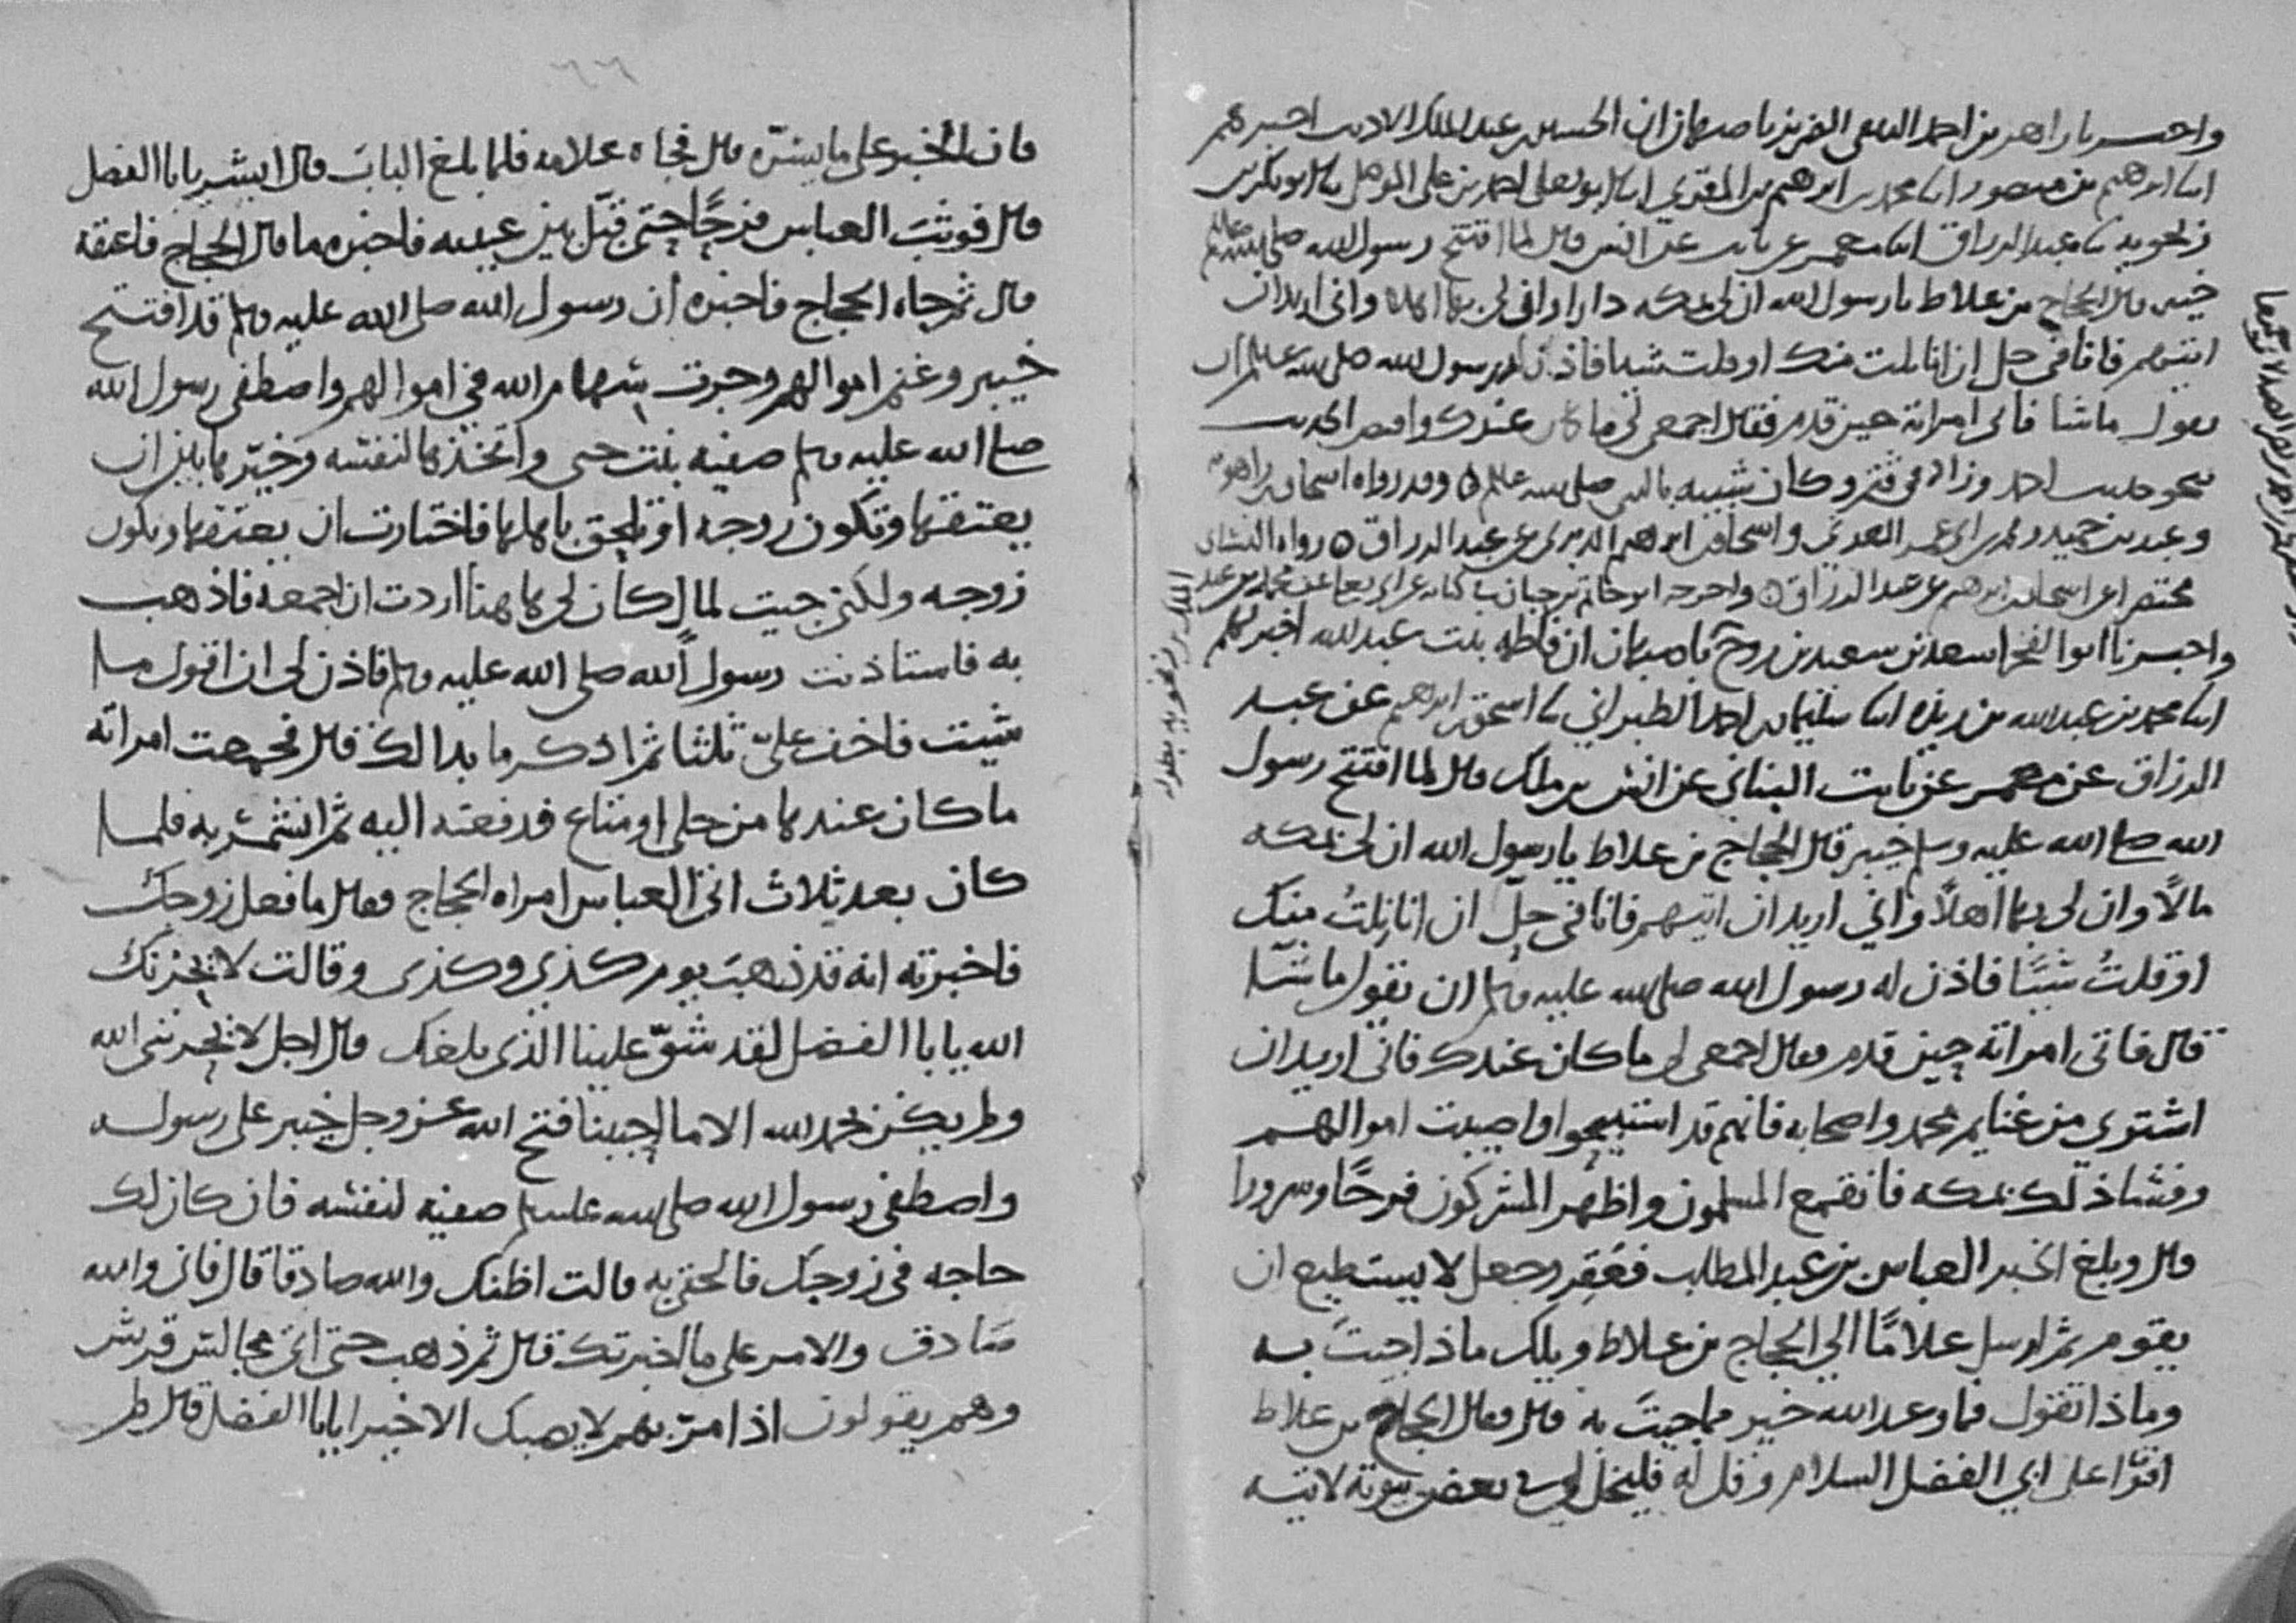 واخبرنا زاهر بن احمد الثقفي باصبهان ان الحسين بن عبد الملك الاديب اخبرهم
ابنا ابرهيم بن منصور ابنا محمد بن ابرهيم بن المقري ابنا ابو يعلى احمد بن علي الموصلي ثنا ابو بكر بن
زنجويه ثنا عبد الرزاق ابنا معمر عن ثابت عن انس قال لما افتتح رسول الله صلى الله عليه وسلم
خيبر قال الحجاج بن علاط يا رسول الله ان لي بمكه دارا وان لي بها اهلا واني اريد ان
اتيهم فانا في حل ان انا نلت منك او قلت شيا فاذن له رسول الله صلى الله عليه وسلم ان
يقول ما شا فاتى امراته حين قدم فقال اجمعي لي ما كان عندك واقتص الحديث
بنحو حديث احمد وزاد في قثم وكان شبيه بالنبي صلى الله عليه وسلم وقد رواه اسحاق بن راهويه
وعبد بن حميد ومحمد بن ابي عمر العدني واسحاق بن ابرهيم الدبري عن عبد الرزاق رواه النسائي
مختصرا عن اسحاق بن ابرهيم عن عبد الرزاق واخرجه ابو حاتم بن حبان في كتابه عن ابي يعلى عن محمد بن عبد
الملك بن زنجويه بطوله
واخبرنا ابو الفخر اسعد بن سعيد بن روح باصبهان ان فاطمه بنت عبد الله اخبرتهم
ابنا محمد بن عبد الله بن ريذه ابنا سليمان بن احمد الطبراني ثنا اسحق بن ابرهيم عن عبد
الرزاق عن معمر عن ثابت البناني عن انس بن ملك قال لما افتتح رسول
الله صلى الله عليه وسلم خيبر قال الحجاج بن علاط يا رسول الله ان لي بمكه
مالًا وان لي بها اهلًا واني اريد ان اتيهم فانا في حلّ ان انا نلتُ منك
او قلتُ شيًا فاذن له رسول الله صلى الله عليه وسلم ان يقول ما شا
قال فاتى امراته حين قدم فقال اجمعي لي ما كان عندك فاني اريد ان
اشتري من غنايم محمد واصحابه فانهم قد استبيحوا واصيبت اموالهم
وفشا ذلك بمكه فانقمع المسلمون واظهر المشركون فرحًا وسرورا
قال وبلغ الخبر العباس بن عبد المطلب فعَقِر وجعل لا يستطيع ان
يقوم ثم ارسل غلامًا الى الحجاج بن علاط ويلك ماذا جيتَ به
وماذا تقول فما وعد الله خير مما جيتَ به قال فقال الحجاج بن علاط
اقرا على ابي الفضل السلام وقل له فليخل لي في بعض بيوته لاتيه
فان الخبر على ما يسرّه قال فجاه غلامه فلما بلغ البابَ قال ابشر يابا الفضل
قال فوثبَ العباس فرحًا حتى قبّل بين عينيه فاخبره ما قال الحجاج فاعتقه
قال ثم جاه الحجاج فاخبره ان رسول الله صلى الله عليه وسلم قد افتتح
خيبر وغنم اموالهم وجرت سهام الله في اموالهم واصطفى رسول الله
صلى الله عليه وسلم صفيه بنت حيي واتخذها لنفسه وخيّرها بين ان
يعتقها وتكون زوجه او تلحق باهلها فاختارت ان يعتقها وتكون
زوجه ولكني جيت لمال كان لي هاهنا اردت ان اجمعه فاذهب
به فاستاذنت رسول الله صلى الله عليه وسلم فاذن لي ان اقول ما
شيت فاخف عليّ ثلثا ثم اذكر ما بدا لك قال فجمعت امراته
ما كان عندها من حلي او متاع فدفعته اليه ثم انشمر به فلما
كان بعد ثلاث اتى العباس امراه الحجاج فقال ما فعل زوجك
فاخبرته انه قد ذهبَ يوم كذى وكذى وقالت لا يحزنك
الله يابا الفضل لقد شقّ علينا الذي بلغك قال اجل لا يحزنني الله
ولم يكن بحمد الله الا ما احببنا فتح الله عز وجل خيبر على رسوله
واصطفى رسول الله صلى الله عليه وسلم صفيه لنفسه فان كان لك
حاجه في زوجك فالحقي به قالت اظنك والله صادقا قال فاني والله
صادق والامر على ما اخبرتك قال ثم ذهب حتى اتى مجالس قريش
وهم يقولون اذا مرّ بهم لا يصبك الا خير يابا الفضل قال لم